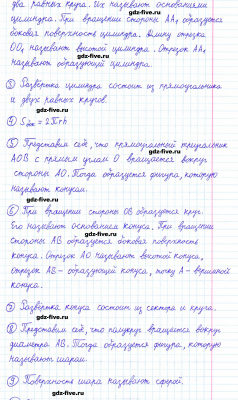 два равных круга. Их называют основаниями
цилиндра. При вращении стороны АА₁ образуется
gdz-five.ru
боковая поверхность цилиндра. Длину отрезка
ОО₁ называют высотой цилиндра. Отрезок АА₁
называют образующей цилиндра.
gdz-five.ru
③ Развертка цилиндра состоит из прямоугольника
и двух равных кругов.
gdz-five.ru
④ Sбок = 2πrh
gdz-five.ru
⑤ Представим себе, что прямоугольный треугольник
АОВ с прямым углом О вращается вокруг
gdz-five.ru
стороны АО. Тогда образуется фигура, которую
называют конусом.
gdz-five.ru
⑥ При вращении стороны ОВ образуется круг.
Его называют основанием конуса. При вращении
gdz-five.ru
стороны АВ образуется боковая поверхность
конуса. Отрезок АО называют высотой конуса,
gdz-five.ru
отрезок АВ - образующей конуса, точку А - вершиной
конуса.
gdz-five.ru
⑦ Развертка конуса состоит из сектора и круга.
gdz-five.ru
⑧ Представим себе, что полукруг вращается вокруг
диаметра АВ. Тогда образуется фигура, которую
gdz-five.ru
называют шаром.
gdz-five.ru
⑨ Поверхность шара называют сферой.
gdz-five.ru